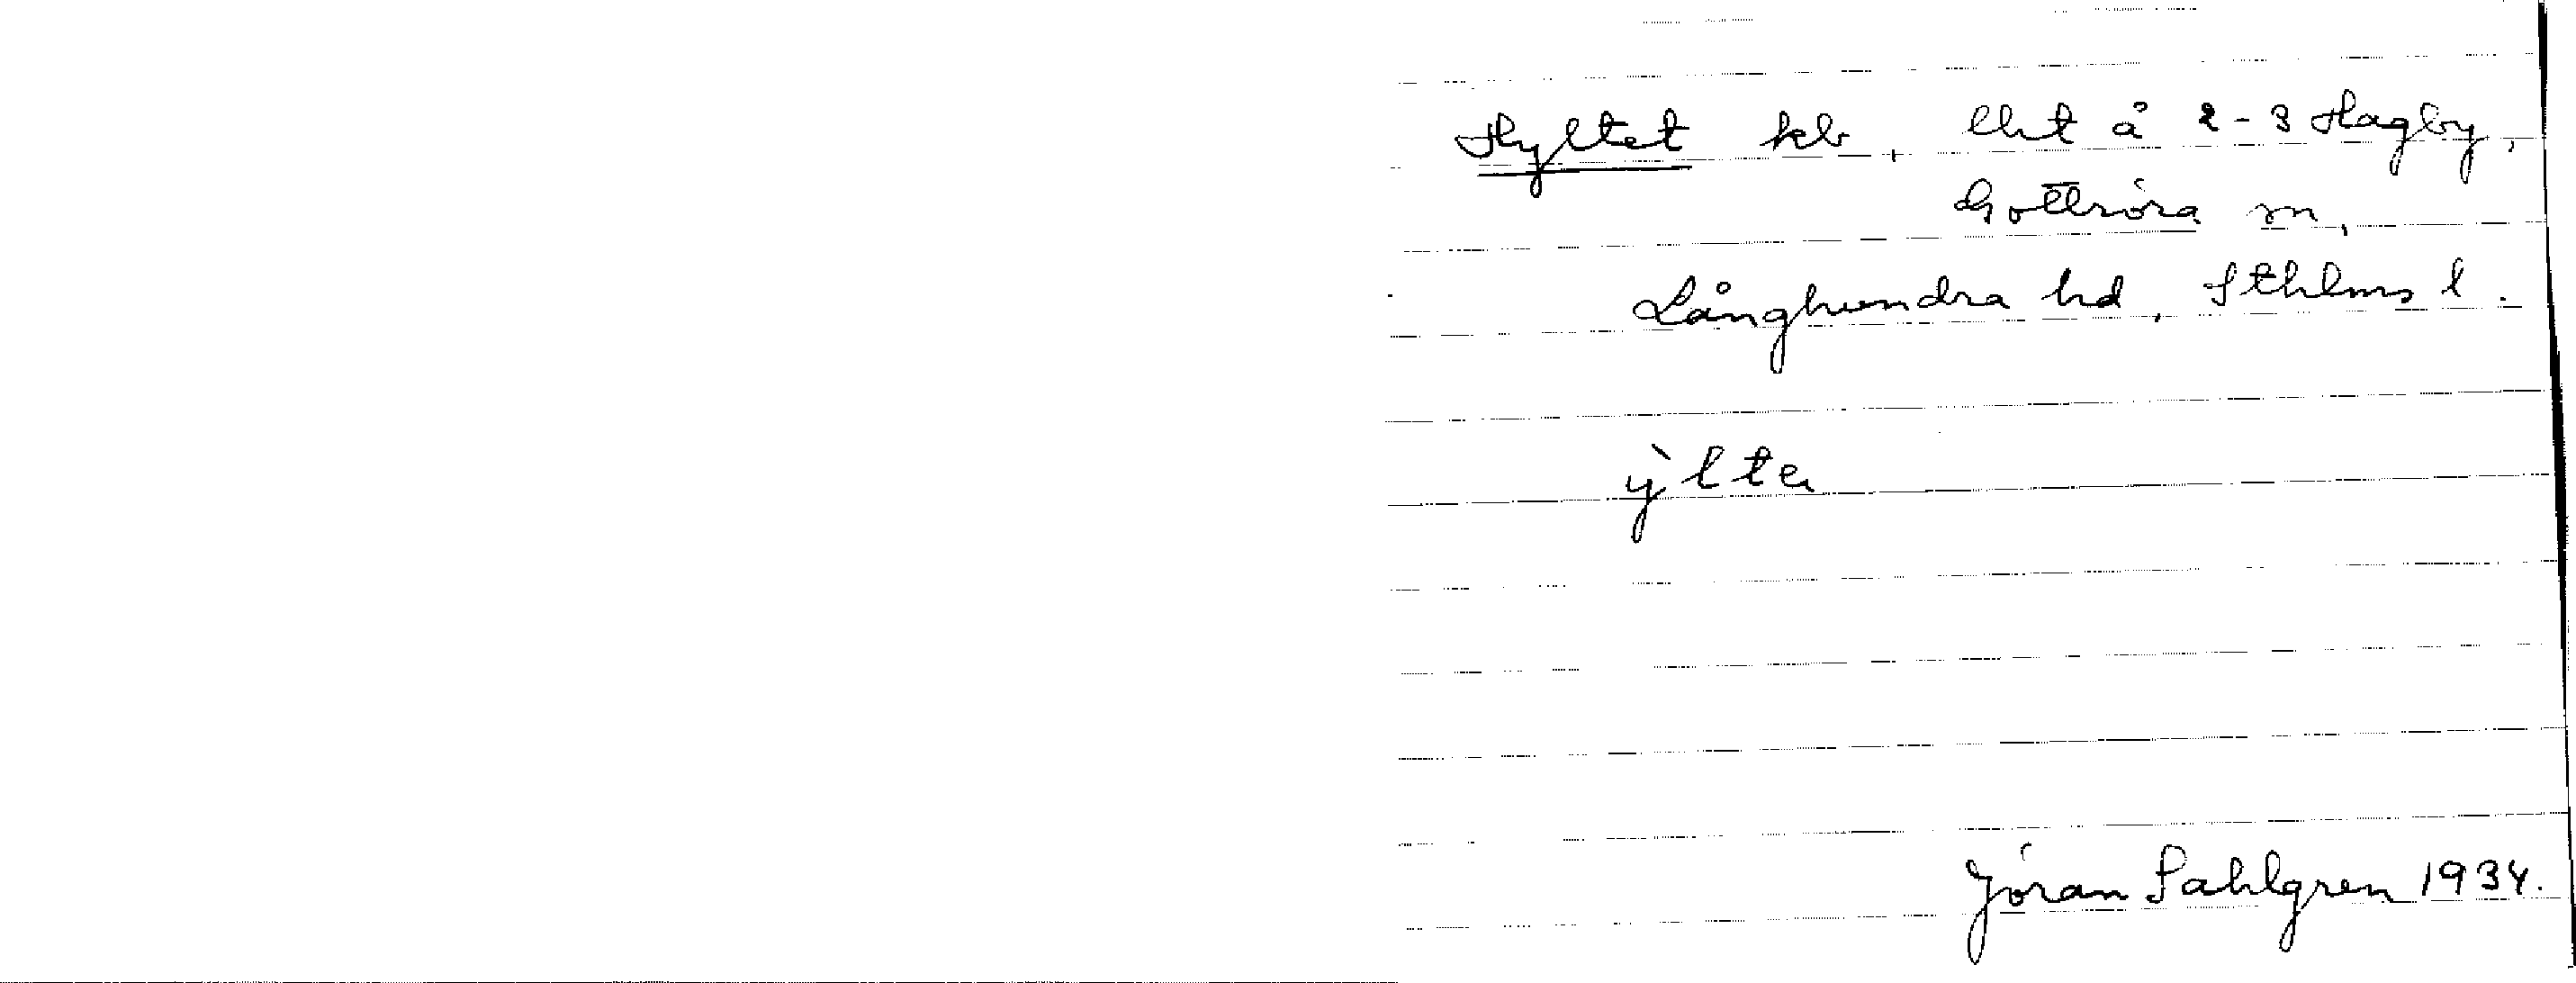 Hyltet kb, lht å 2-3 Hagby,
Gottröra sn,
Långhundra hd, Sthlms l.
ỳlte
Jöran Sahlgren 1934.